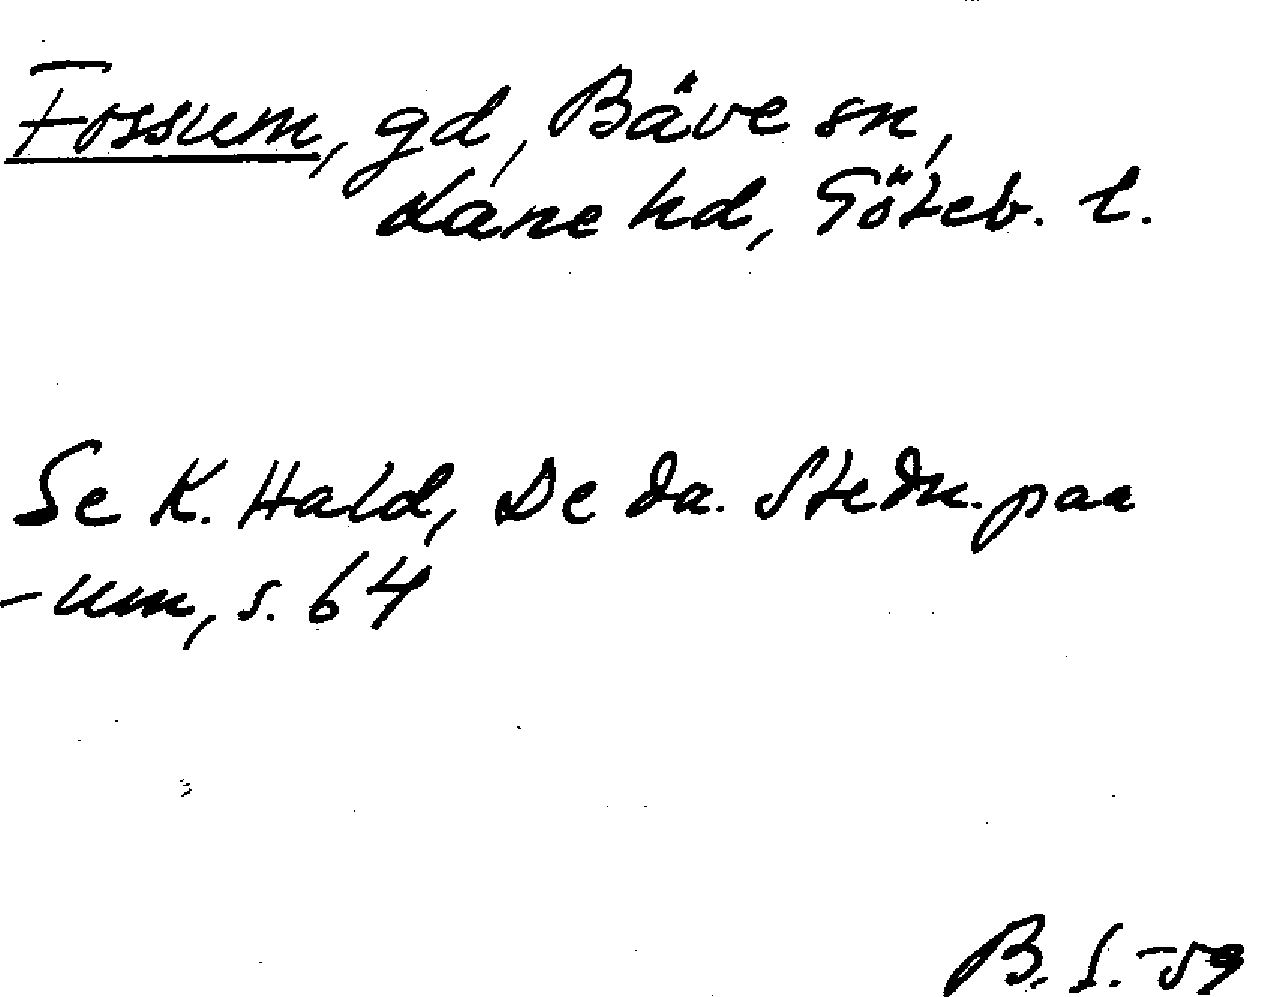 Fossum, gd, Bäve sn,
Lane hd, Göteb. l.
Se K. Hald, De da. Stedn. paa
-um, s. 64
B. S. -59